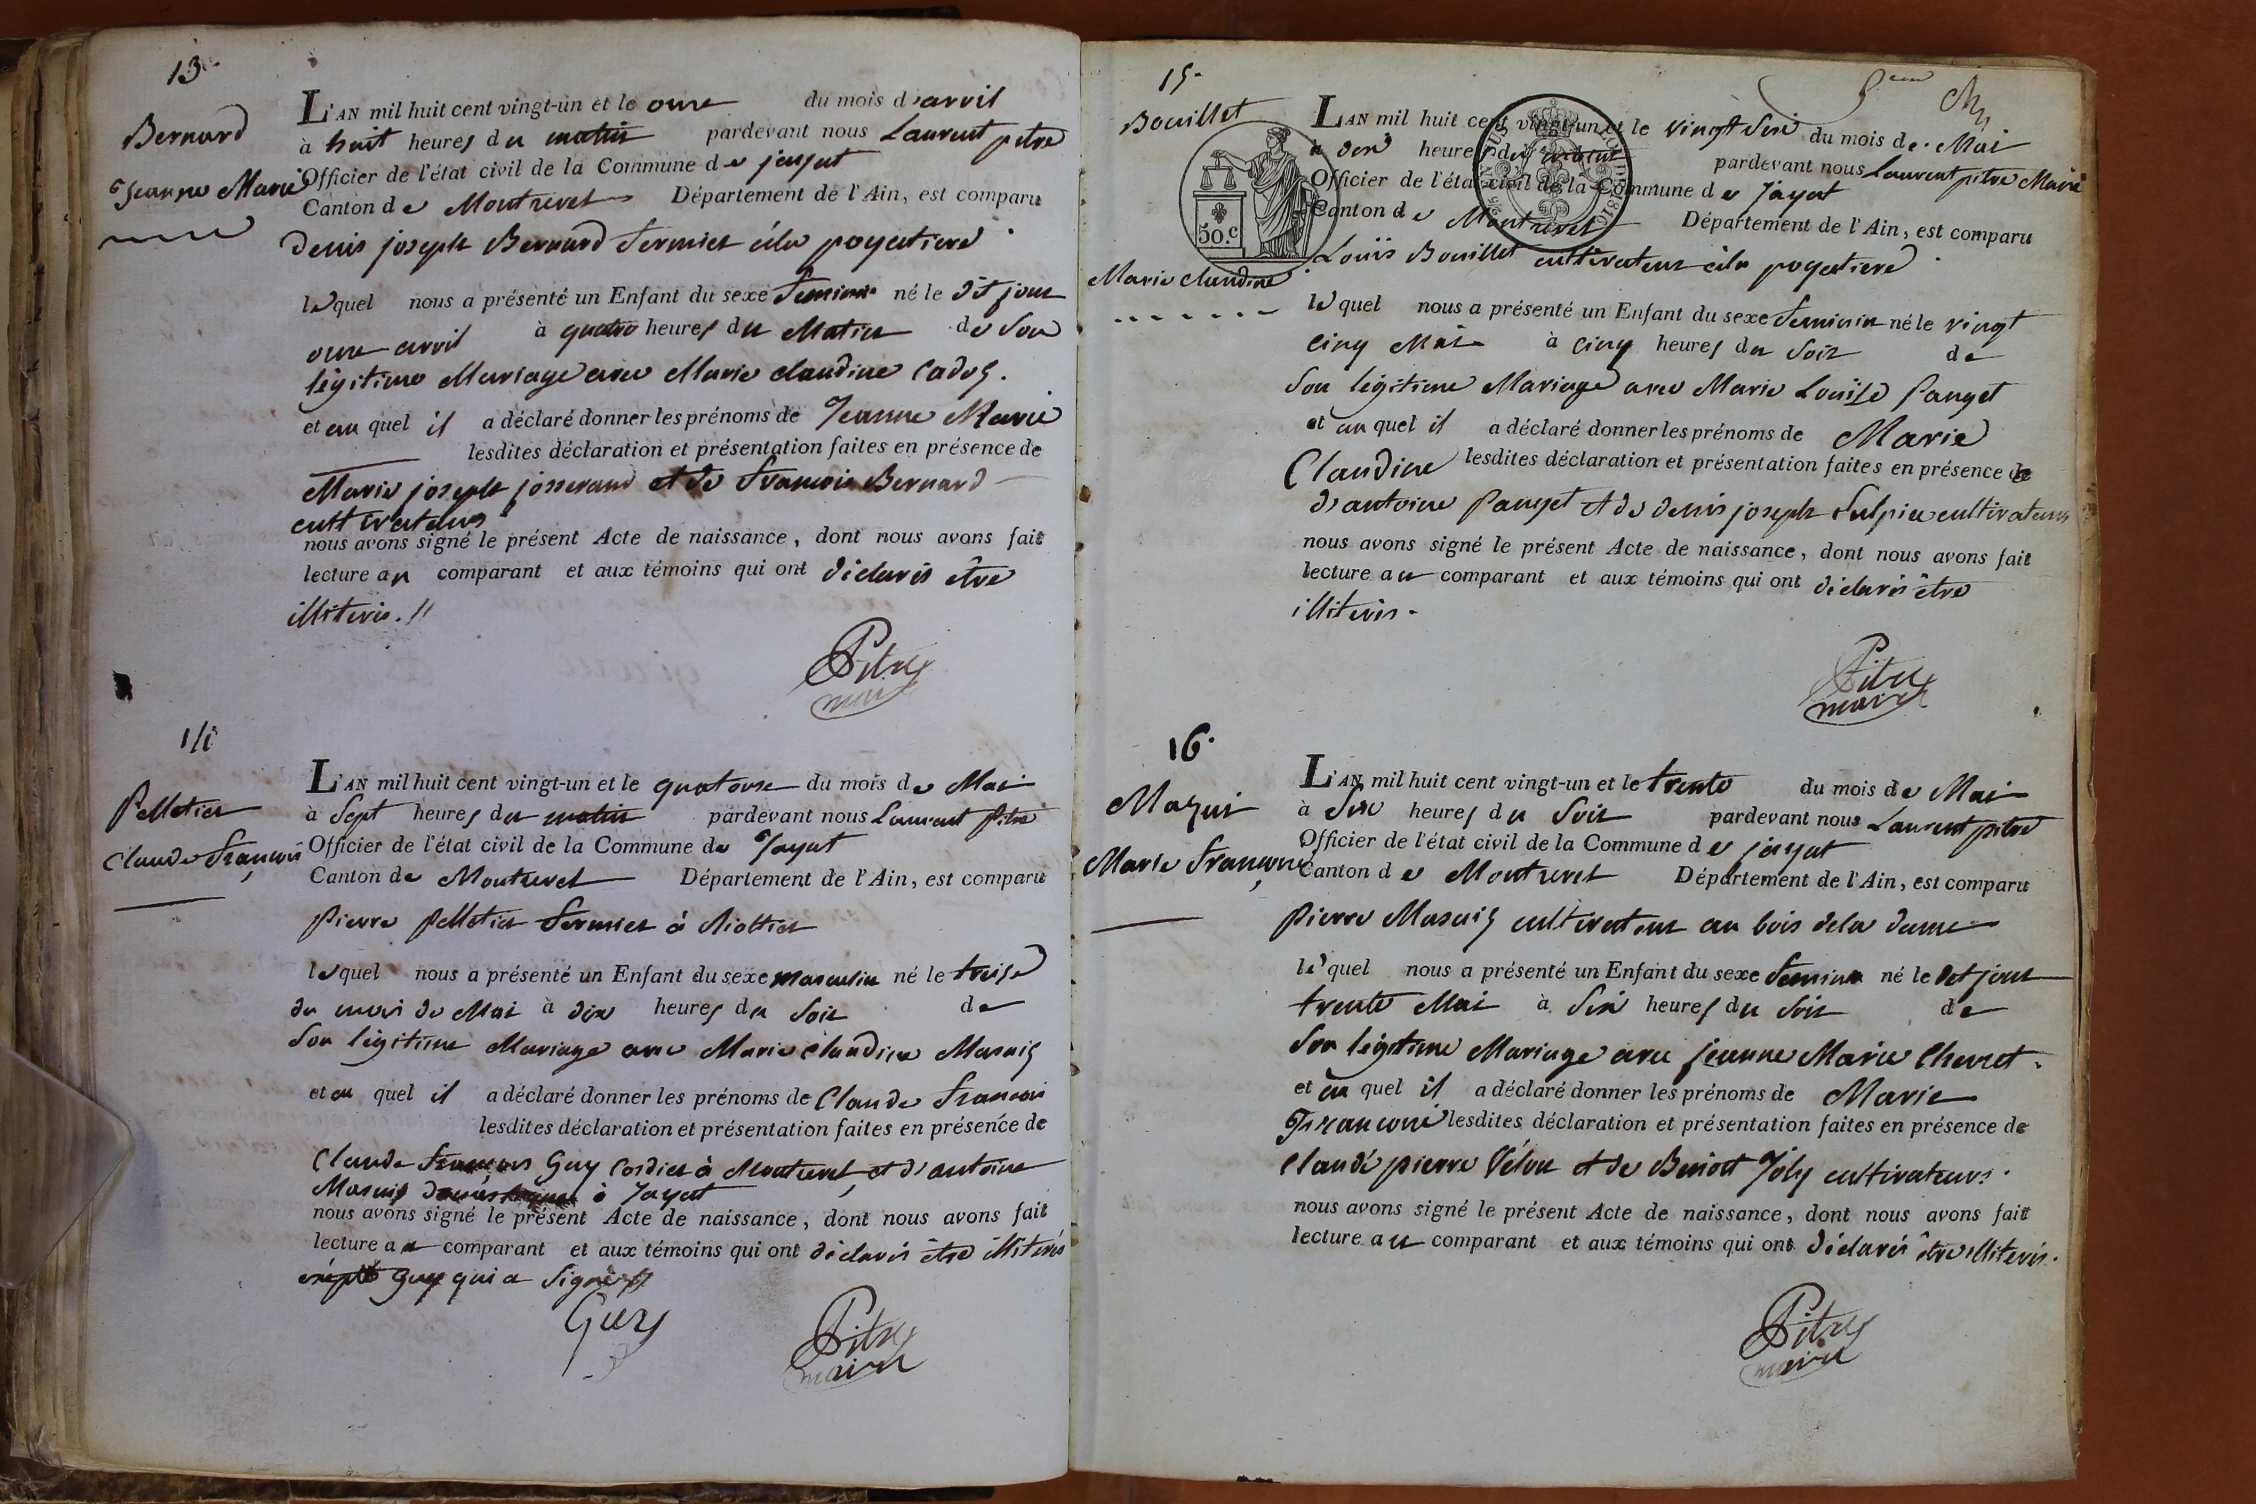 13
Bernard
Jeanne Marie
L'AN mil huit cent vingt-un et le onze du mois d'avril
à huit heures du matin pardevant nous Laurent pitre
Officier de l'état civil de la Commune de jayat
Canton de Montrevel Département de l'Ain, est comparu
denis joseph Bernard fermier à la poyatiere
lequel nous a présenté un Enfant du sexe feminin né le dit jour
onze avril à quatre heures du Matin de son
légitime Mariage avec Marie claudine Cadoz.
et au quel il a déclaré donner les prénoms de Jeanne Marie
lesdites déclaration et présentation faites en présence de
Marie joseph josserand et de francois Bernard
cultivateurs
nous avons signé le présent Acte de naissance, dont nous avons fait
lecture au comparant et aux témoins qui ont déclarés être
illiterés. //
Pitre
maire
14
Pelletier
Claude François
L'AN mil huit cent vingt-un et le quatorze du mois de Mai
à sept heures du matin pardevant nous Laurent Pitre
Officier de l'état civil de la Commune de Jayat
Canton de Montrevel Département de l'Ain, est comparu
pierre pelletier fermier à
lequel nous a présenté un Enfant du sexe masculin né le treise
du mois de Mai à dix heures du soir de
son légitime Mariage avec Marie claudine Mazuiz
et au quel il a déclaré donner les prénoms de Claude francois
lesdites déclaration et présentation faites en présence de
Claude françois Guy Cordier à Montrevel, et d'antoine
Mazuiz à Jayat
nous avons signé le présent Acte de naissance, dont nous avons fait
lecture au comparant et aux témoins qui ont déclarés être illiterés
excepté Guy qui a signé //
Guy
Pitre
maire
15
Bouillet
Marie claudine
50.c
L'AN mil huit cent vingt-un et le vingt six du mois de Mai
à dix heures du matin pardevant nous Laurent pitre Maire
Officier de l'état civil de la Commune de Jayat
Canton de Montrevel Département de l'Ain, est comparu
Louis Bouillet cultivateur à la poyatiere
lequel nous a présenté un Enfant du sexe feminin né le vingt
cinq Mai à cinq heures du soir de
son légitime Mariage avec Marie Louise panget
et au quel il a déclaré donner les prénoms de Marie
Claudine lesdites déclaration et présentation faites en présence de
d'antoine panget et de denis joseph Sulpice cultivateurs
nous avons signé le présent Acte de naissance, dont nous avons fait
lecture au comparant et aux témoins qui ont déclarés être
illiterés.
Pitre
maire
16.
Mazui
Marie Françoise
L'AN mil huit cent vingt-un et le trente du mois de Mai
à six heures du soir pardevant nous Laurent pitre
Officier de l'état civil de la Commune de jayat
Canton de Montrevel Département de l'Ain, est comparu
pierre Mazuiz cultivateur au bois de la dame
lequel nous a présenté un Enfant du sexe feminin né le dit jour
trente Mai à six heures du soir de
son légitime Mariage avec jeanne Marie Chevret.
et au quel il a déclaré donner les prénoms de Marie
Françoise lesdites déclaration et présentation faites en présence de
Claude pierre Vélon et de Benoit Joly cultivateurs.
nous avons signé le présent Acte de naissance, dont nous avons fait
lecture au comparant et aux témoins qui ont déclarés être illiterés.
Pitre
maire